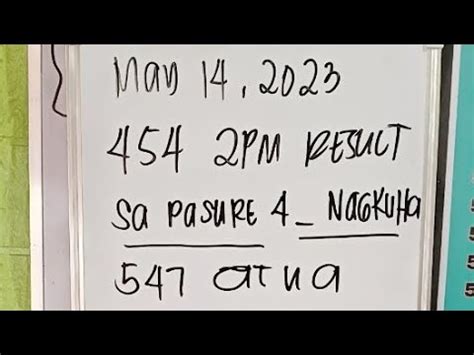 May 14, 2023
454 2PM RESULT
Sa PaSURE 4_ NAGKUHA
547 atua